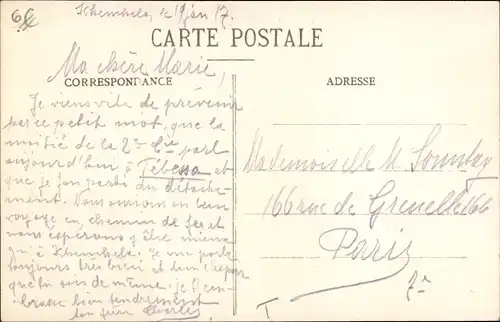 Khenchela, le 19 jan 17.
CARTE POSTALE
Ma chère Marie,
CORRESPONDANCE
ADRESSE
Je viens vite de prévenir
par ce petit mot, que la
moitié de la 2e Cie part
aujourd'hui à Tébessa et
que je fais partie du détache-
ment. Nous aurons un beau
voyage en chemin de fer et
nous espérons y être mieux
qu'à Khenchela. Je me porte
toujours très bien et
que toi de même, je t'em-
brasse bien tendrement
ton frère Charles
Mademoiselle M. Sonntag
166 rue de Grenelle 166
Paris
7e
T